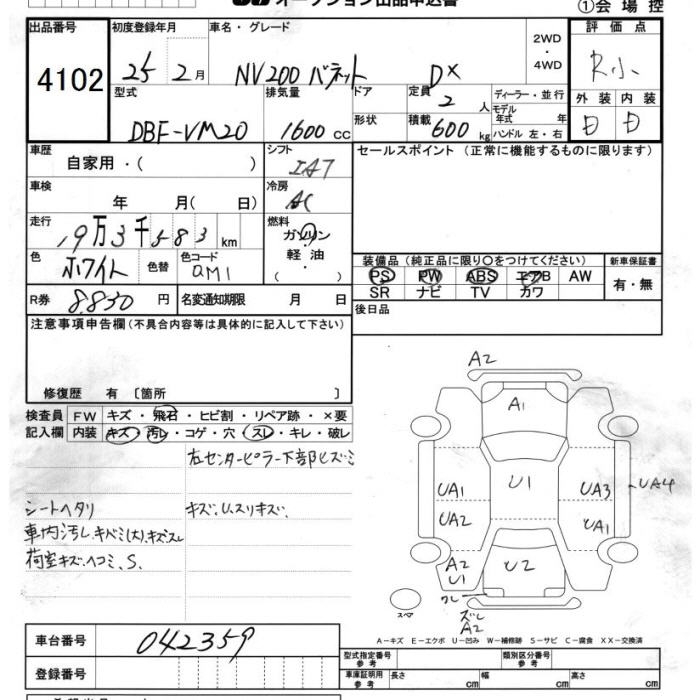 オークション出品申込書
①会場控
出品番号 初度登録年月 車名・グレード 評価点
4102 25 2月 NV200 バネット DX 2WD・4WD R小
型式 排気量 ドア 定員 2 人 ディーラー・並行 外装 内装
DBF-VM20 1600 cc 形状 積載 600 kg モデル年式 年 ハンドル 左・右 D D
車歴 シフト セールスポイント (正常に機能するものに限ります)
自家用・( ) IAT
車検 冷房
年 月( 日) AC
走行 燃料
19万3千583 km ガソリン・軽油・( )
色 ホワイト 色替 色コード QM1
装備品(純正品に限り○をつけてください) 新車保証書
PS PW ABS エアB AW 有・無
SR ナビ TV カワ
R券 8.830 円 名変通知期限 月 日
後日品
注意事項申告欄(不具合内容等は具体的に記入して下さい)
修復歴 有〔箇所 〕
検査員 FW キズ・飛石・ヒビ割・リペア跡・×要
記入欄 内装 キズ・汚レ・コゲ・穴・スレ・キレ・破レ
右センターピラー下部ヒズミ
シートヘタリ キズ、U、スリキズ、
車内汚レ、キバミ(大)、キズスレ
荷室キズ、ヘコミ、S、
A2
A1
UA1 U1 UA3 UA4
UA2 UA1
A2
U1 U2
クレ
スペア
ズレ
A2
A-キズ E-エクボ U-凹み W-補修跡 S-サビ C-腐食 XX-交換済
車台番号 042359
登録番号
型式指定番号 参考 類別区分番号 参考
車庫証明用 参考 長さ cm 幅 cm 高さ cm